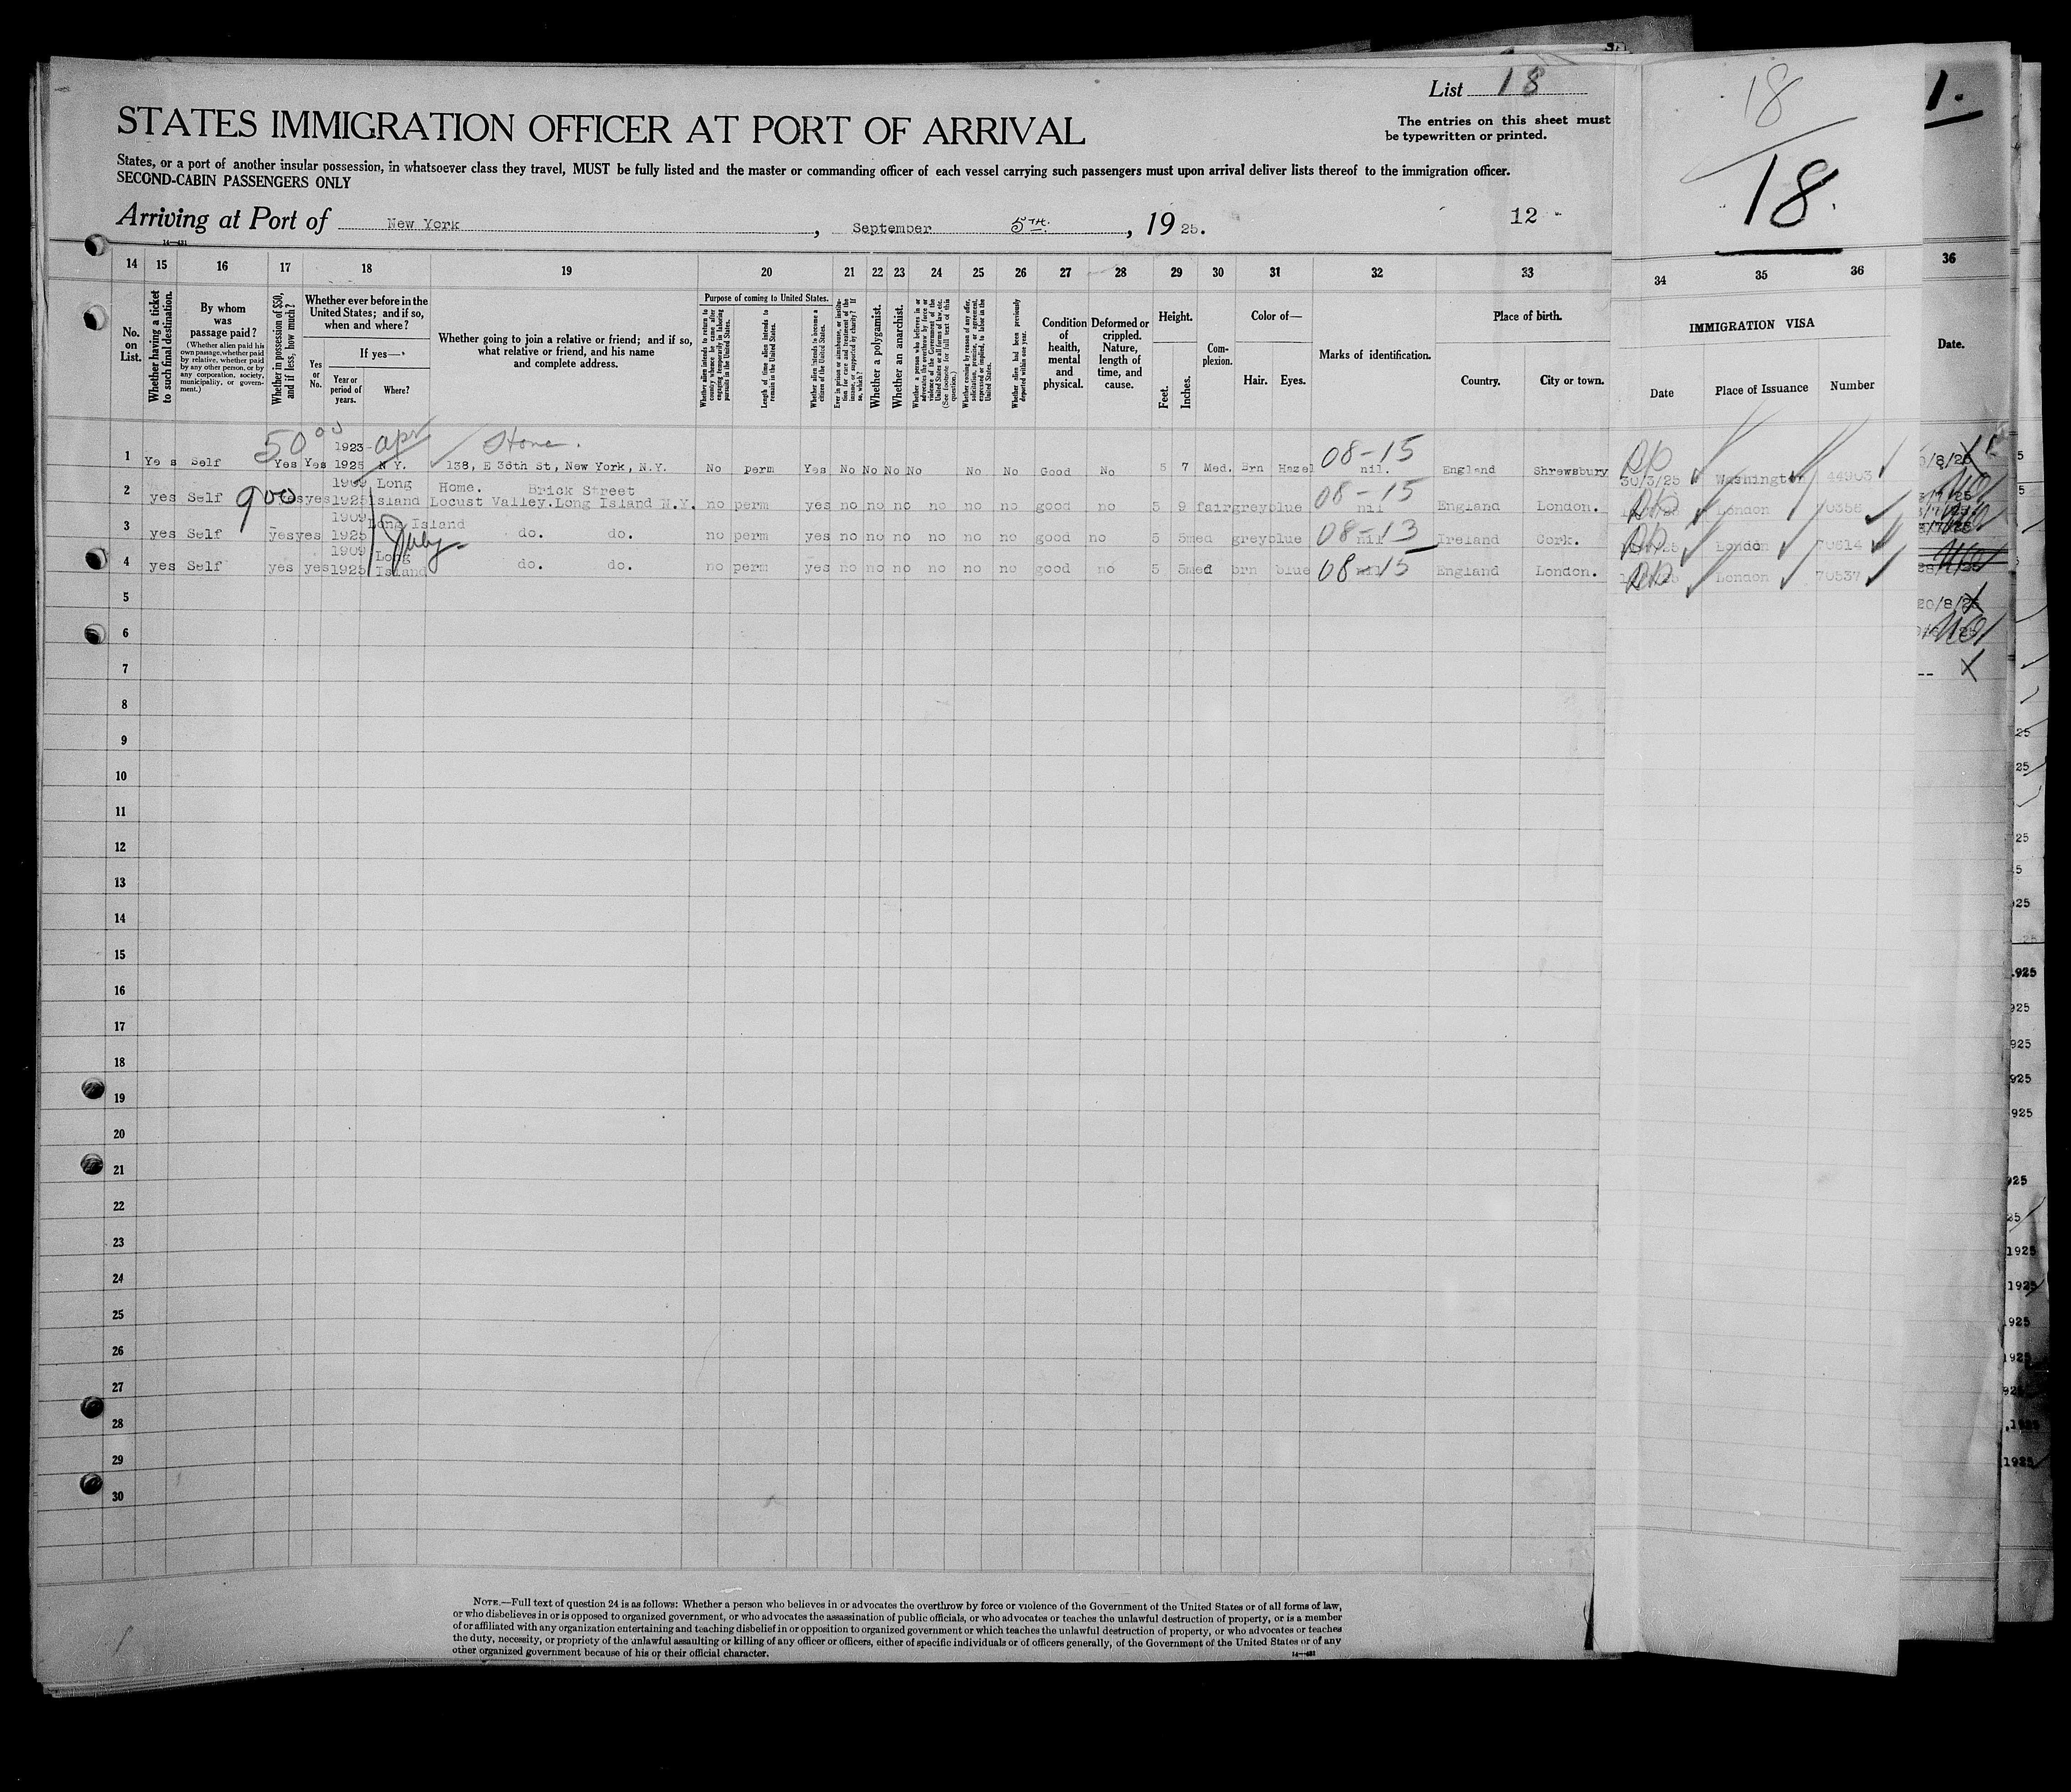 List 18
STATES IMMIGRATION OFFICER AT PORT OF ARRIVAL
The entries on this sheet must
be typewritten or printed.
States, or a port of another insular possession, in whatsoever class they travel, MUST be fully listed and the master or commanding officer of each vessel carrying such passengers must upon arrival deliver lists thereof to the immigration officer.
SECOND-CABIN PASSENGERS ONLY
Arriving at Port of New York, September 5TH, 1925.
12
18
18.
1.
14—431
14 15 16 17 18 19 20 21 22 23 24 25 26 27 28 29 30 31 32 33 34 35 36 36
No. on List.
Whether having a ticket to such final destination.
By whom was passage paid?
(Whether alien paid his own passage, whether paid by relative, whether paid by any other person, or by any corporation, society, municipality, or government.)
Whether in possession of $50, and if less, how much?
Whether ever before in the United States; and if so, when and where?
Yes or No.
If yes—
Year or period of years.
Where?
Whether going to join a relative or friend; and if so, what relative or friend, and his name and complete address.
Purpose of coming to United States.
Whether alien intends to return to country whence he came after engaging temporarily in laboring pursuits in the United States.
Length of time alien intends to remain in the United States.
Whether alien intends to become a citizen of the United States.
Ever in prison or almshouse, or institution for care and treatment of the insane, or supported by charity? If so, which?
Whether a polygamist.
Whether an anarchist.
Whether a person who believes in or advocates the overthrow by force or violence of the Government of the United States or all forms of law, etc. (See footnote for full text of this question.)
Whether coming by reason of any offer, solicitation, promise, or agreement, expressed or implied, to labor in the United States.
Whether alien had been previously deported within one year.
Condition of health, mental and physical.
Deformed or crippled. Nature, length of time, and cause.
Height.
Feet.
Inches.
Complexion.
Color of—
Hair.
Eyes.
Marks of identification.
Place of birth.
Country.
City or town.
IMMIGRATION VISA
Date
Place of Issuance
Number
Date.
50 00 1923- apr Home. 08-15
1 Yes Self Yes Yes 1925 N Y. 138, E 36th St, New York, N.Y. No perm Yes No No No No No No Good No 5 7 Med. Brn Hazel nil. England Shrewsbury 30/3/25 Washington 44903
1909 Long Home. Brick Street
2 yes Self 900 yes yes 1925 Island Locust Valley. Long Island N.Y. no perm yes no no no no no no good no 5 9 fair grey blue 08-15 nil England London. London
1909 Long Island
3 yes Self yes yes 1925 July do. do. no perm yes no no no no no no good no 5 5 med grey blue 08-13 nil Ireland Cork. London 70514
1909 Long
4 yes Self yes yes 1925 Island do. do. no perm yes no no no no no no good no 5 5 med brn blue 08-15 England London. London 70537
5
6
7
8
9
10
11
12
13
14
15
16
17
18
19
20
21
22
23
24
25
26
27
28
29
30
NOTE.—Full text of question 24 is as follows: Whether a person who believes in or advocates the overthrow by force or violence of the Government of the United States or of all forms of law,
or who disbelieves in or is opposed to organized government, or who advocates the assassination of public officials, or who advocates or teaches the unlawful destruction of property, or is a member
of or affiliated with any organization entertaining and teaching disbelief in or opposition to organized government or which teaches the unlawful destruction of property, or who advocates or teaches
the duty, necessity, or propriety of the unlawful assaulting or killing of any officer or officers, either of specific individuals or of officers generally, of the Government of the United States or of any
other organized government because of his or their official character.
14—431